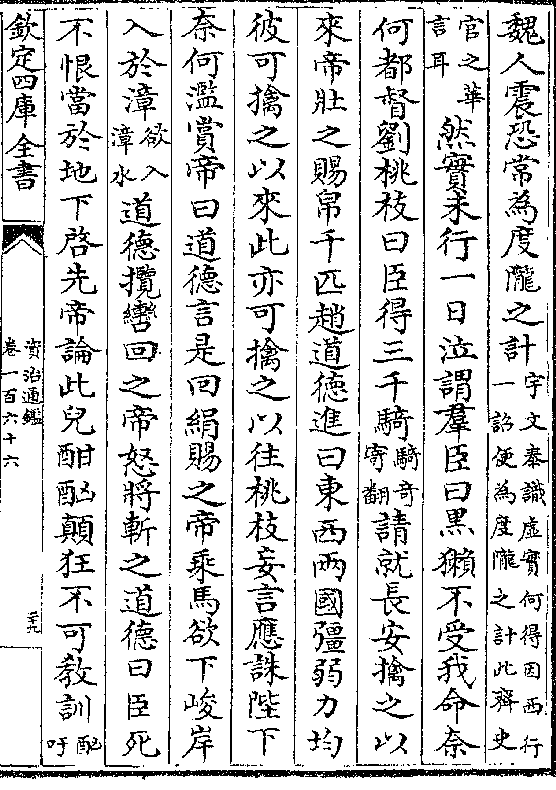 魏人震恐常為度隴之計宇文泰識虛實何得因西行一詔便為度隴之計此齊史
官之華言耳然實未行一日泣謂羣臣曰黒獺不受我命奈
何都督劉桃枝曰臣得三千騎騎奇寄翻請就長安擒之以
來帝壯之賜帛千匹趙道德進曰東西兩國彊弱力均
彼可擒之以來此亦可擒之以往桃枝妄言應誅陛下
奈何濫賞帝曰道德言是回絹賜之帝乗馬欲下峻岸
入於漳欲入漳水道德攬轡回之帝怒將斬之道德曰臣死
不恨當於地下啓先帝論此兒酣酗顛狂不可教訓酗吁
欽定四庫全書
資治通鑑
卷一百六十六